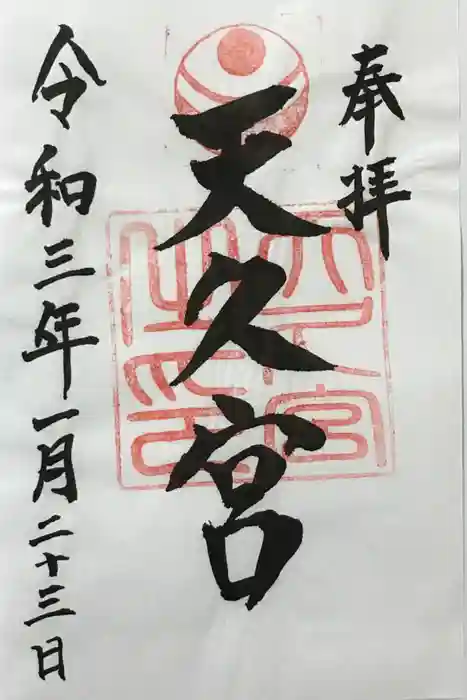 奉拝
天久宮
天久宮之印
令和三年一月二十三日